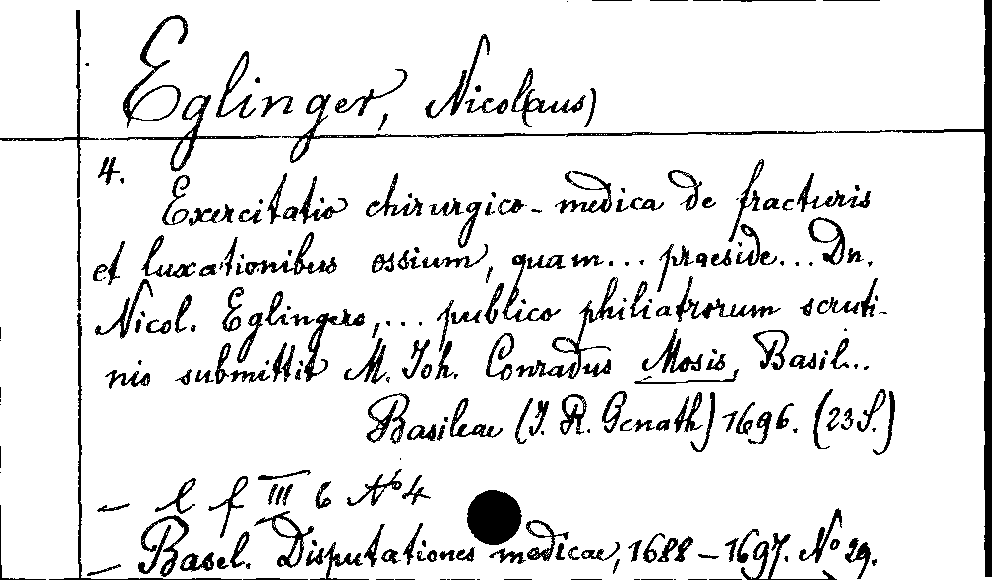 Eglinger, Nicol(aus)
4.
Exercitatio chirurgico-medica de fracturis
et luxationibus ossium, quam... praeside... Dn.
Nicol. Eglingero,... publico philiatrorum scruti-
nio submittit M. Joh. Conradus Mosis, Basil...
Basileae (J. R. Genath) 1696. (23 S.)
— l f III 6 No 4
— Basel. Disputationes medicae, 1688 – 1697. No 29.